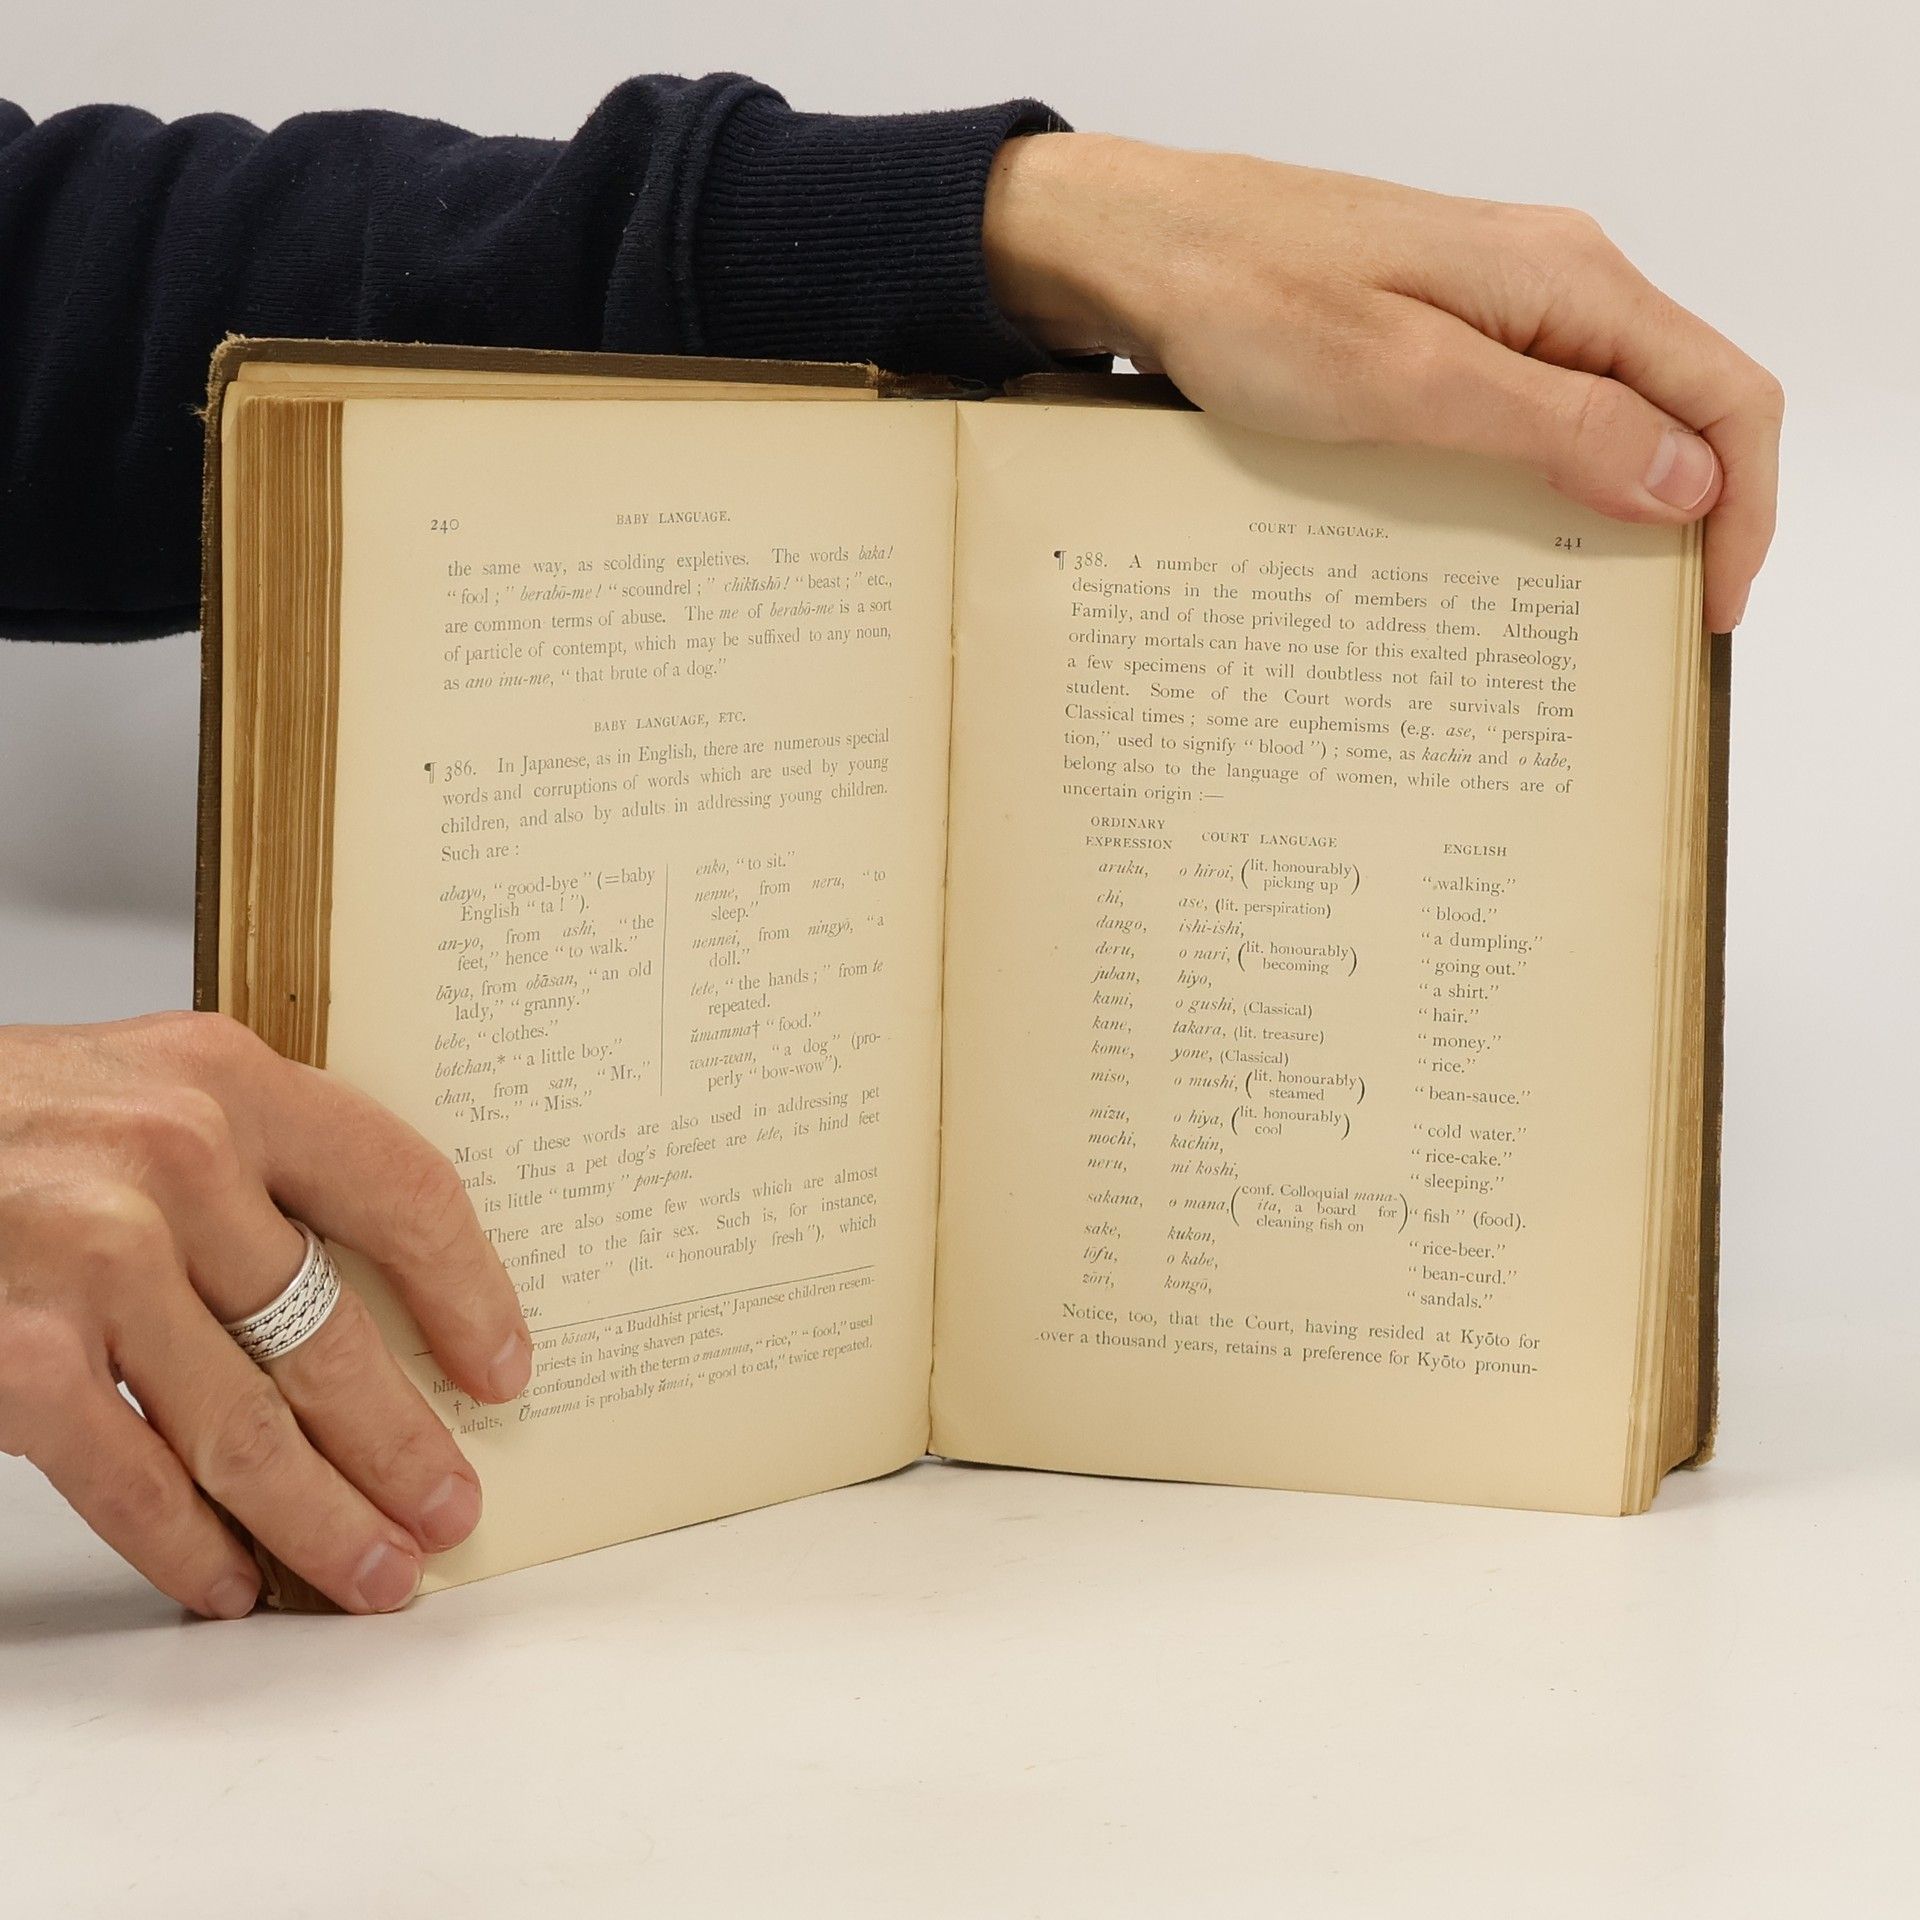 240
BABY LANGUAGE.
the same way, as scolding expletives. The words baka!
“fool;” berabō-me! “scoundrel;” chikŭshō! “beast;” etc.,
are common terms of abuse. The me of berabō-me is a sort
of particle of contempt, which may be suffixed to any noun,
as ano inu-me, “that brute of a dog.”
BABY LANGUAGE, ETC.
¶ 386. In Japanese, as in English, there are numerous special
words and corruptions of words which are used by young
children, and also by adults in addressing young children.
Such are :
abayo, “good-bye” (=baby
English “ta!”).
an-yo, from ashi, “the
feet,” hence “to walk.”
bāya, from obāsan, “an old
lady,” “granny.”
bebe, “clothes.”
botchan,* “a little boy.”
chan, from san, “Mr.,”
“Mrs.,” “Miss.”
enko, “to sit.”
nenne, from neru, “to
sleep.”
nennei, from ningyō, “a
doll.”
tete, “the hands;” from te
repeated.
ŭmamma† “food.”
wan-wan, “a dog” (pro-
perly “bow-wow”).
Most of these words are also used in addressing pet
mals. Thus a pet dog’s forefeet are tete, its hind feet
its little “tummy” pon-pon.
There are also some few words which are almost
confined to the fair sex. Such is, for instance,
cold water” (lit. “honourably fresh”), which
zu.
rom bōsan, “a Buddhist priest,” Japanese children resem-
blin priests in having shaven pates.
† N be confounded with the term o mamma, “rice,” “food,” used
adults. Ŭmamma is probably ŭmai, “good to eat,” twice repeated.
COURT LANGUAGE.
241
¶ 388. A number of objects and actions receive peculiar
designations in the mouths of members of the Imperial
Family, and of those privileged to address them. Although
ordinary mortals can have no use for this exalted phraseology,
a few specimens of it will doubtless not fail to interest the
student. Some of the Court words are survivals from
Classical times; some are euphemisms (e.g. ase, “perspira-
tion,” used to signify “blood”); some, as kachin and o kabe,
belong also to the language of women, while others are of
uncertain origin :—
ORDINARY EXPRESSION COURT LANGUAGE ENGLISH
aruku, o hiroi, (lit. honourably picking up) “walking.”
chi, ase, (lit. perspiration) “blood.”
dango, ishi-ishi, “a dumpling.”
deru, o nari, (lit. honourably becoming) “going out.”
juban, hiyo, “a shirt.”
kami, o gushi, (Classical) “hair.”
kane, takara, (lit. treasure) “money.”
kome, yone, (Classical) “rice.”
miso, o mushi, (lit. honourably steamed) “bean-sauce.”
mizu, o hiya, (lit. honourably cool) “cold water.”
mochi, kachin, “rice-cake.”
neru, mi koshi, “sleeping.”
sakana, o mana, (conf. Colloquial mana-ita, a board for cleaning fish on) “fish” (food).
sake, kukon, “rice-beer.”
tōfu, o kabe, “bean-curd.”
zōri, kongō, “sandals.”
Notice, too, that the Court, having resided at Kyōto for
over a thousand years, retains a preference for Kyōto pronun-